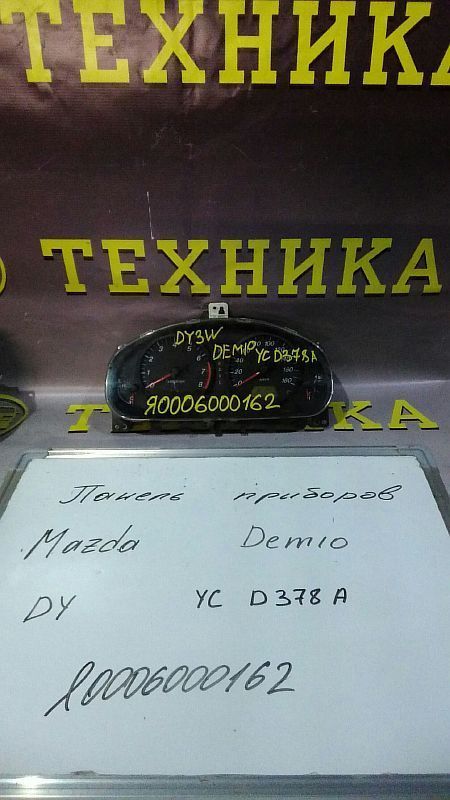 ТЕХНИКА
ТЕХНИКА
DY3W
DEMIO YC D378A
Я0006000162
ТЕХНИКА
Панель приборов
Mazda Demio
DY YC D378A
Я0006000162